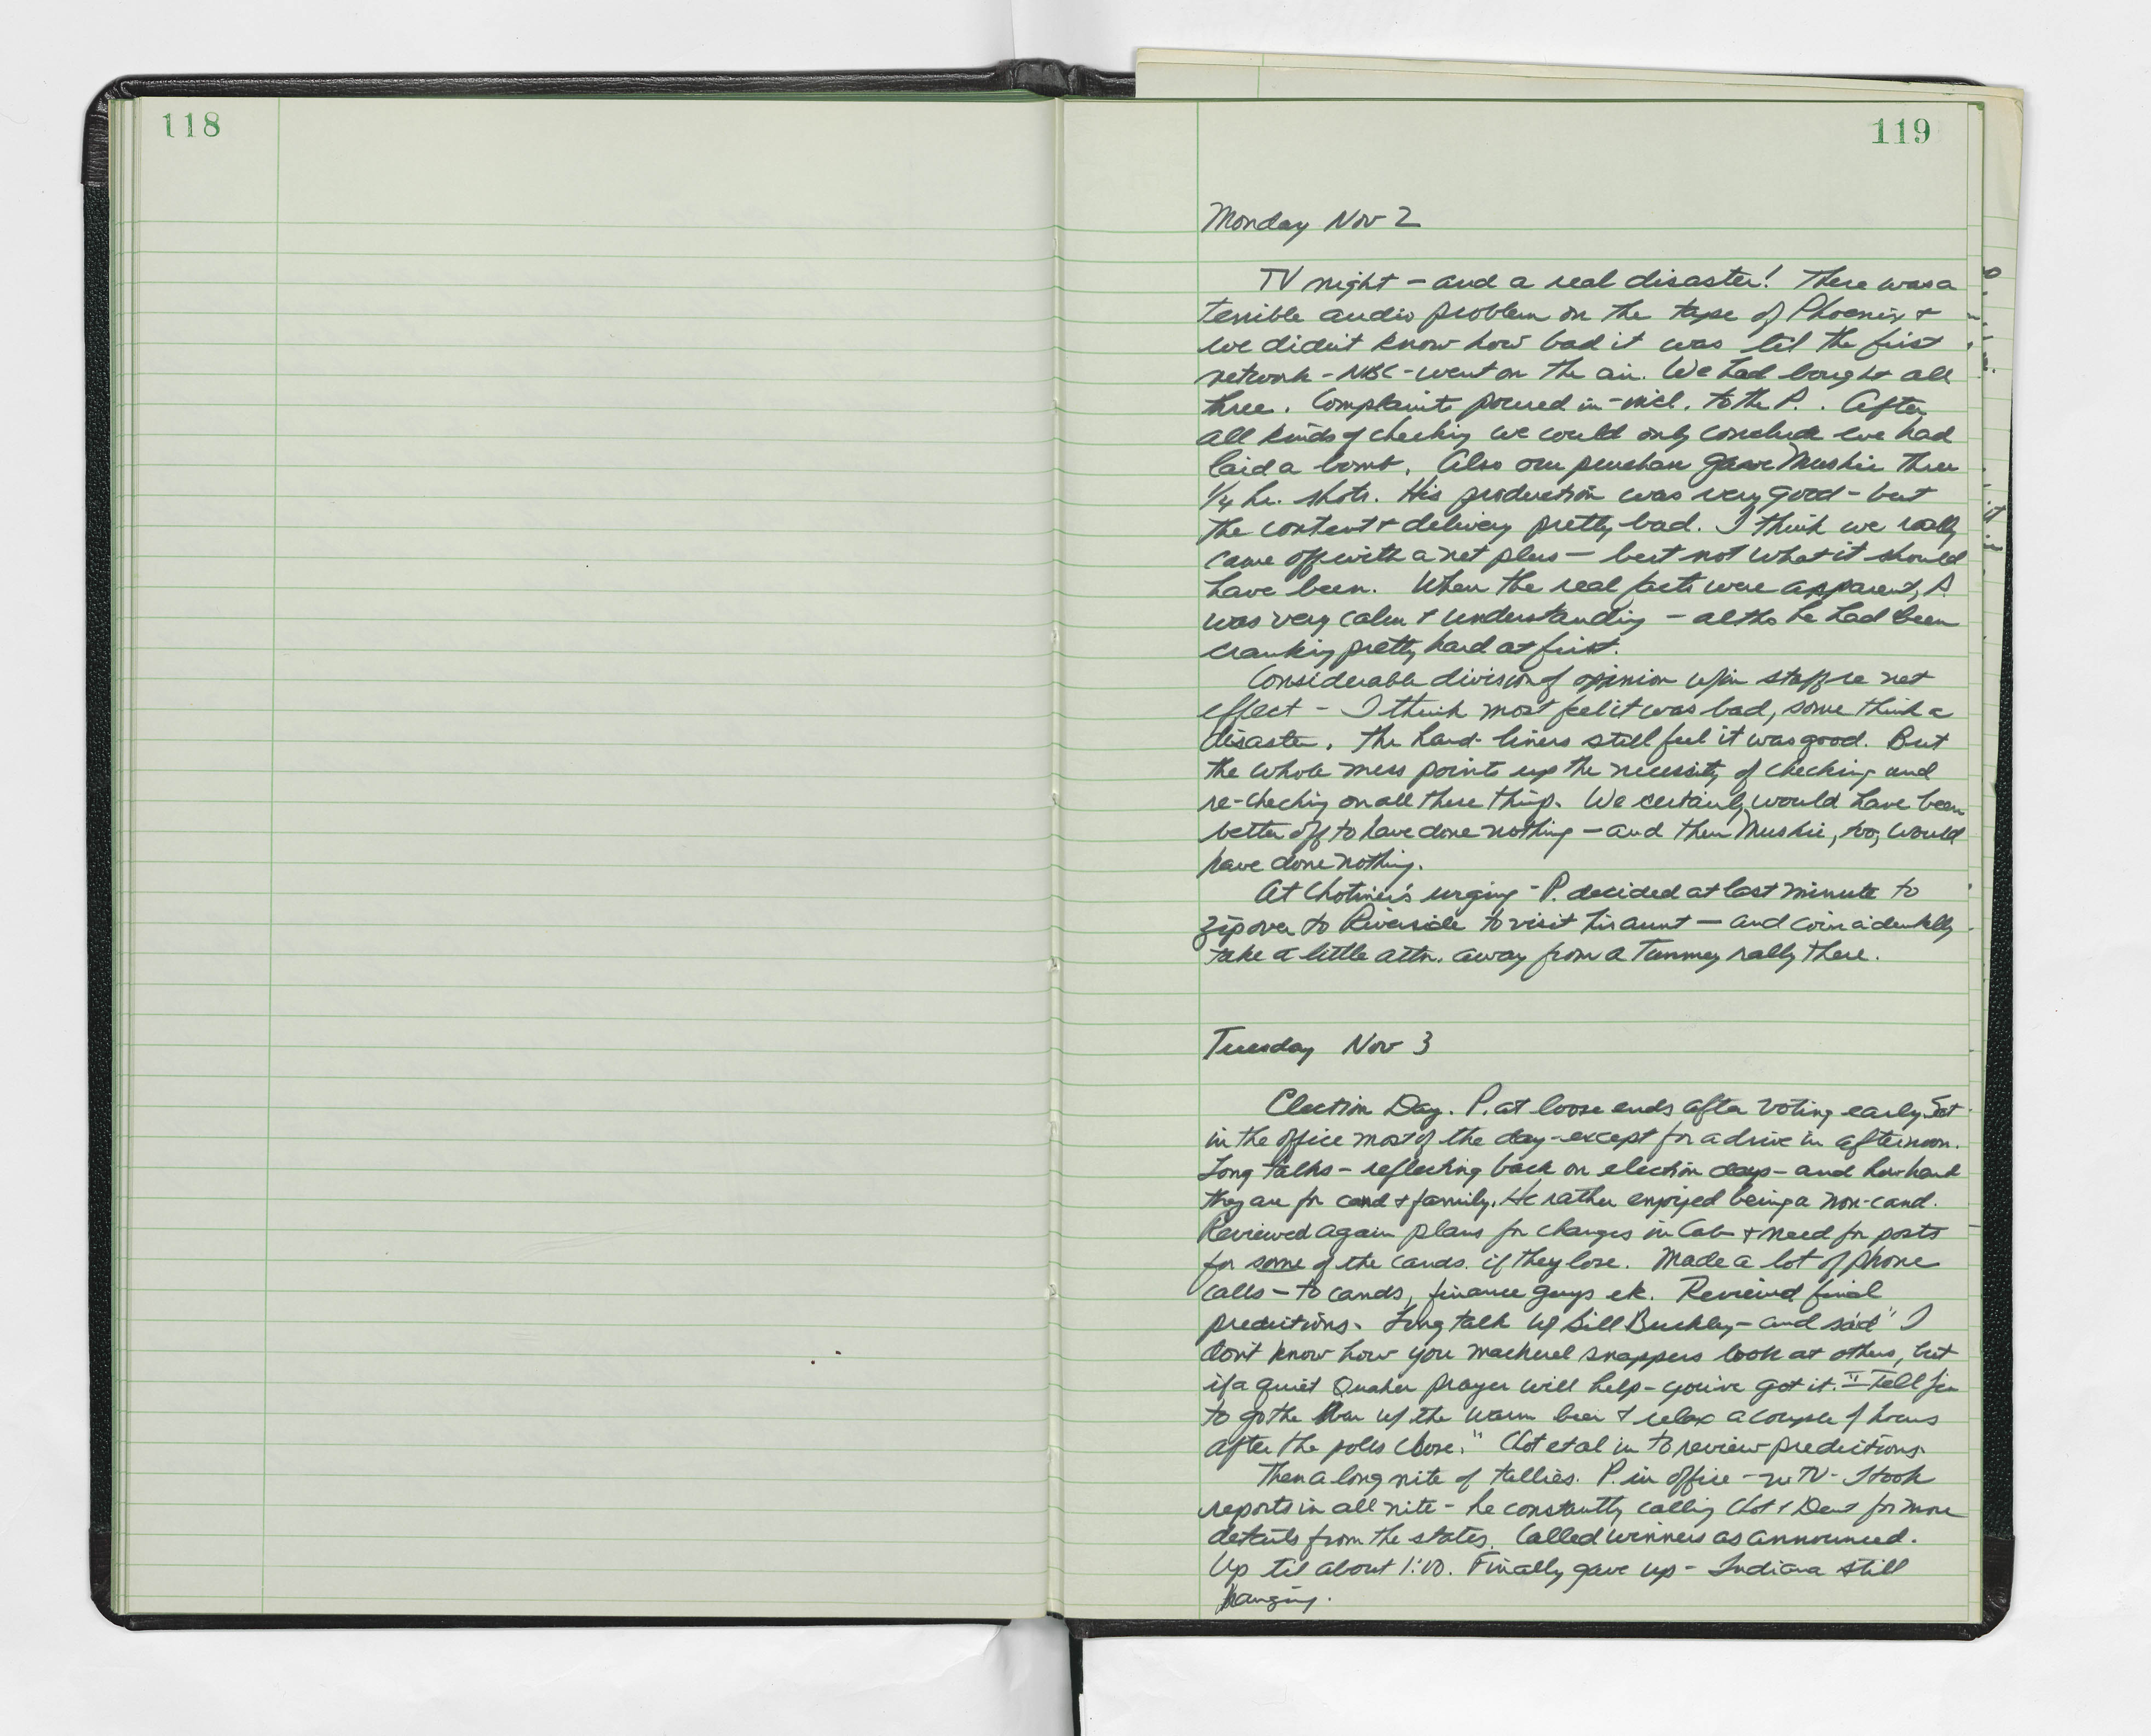 118
119
Monday Nov 2
TV night - and a real disaster! There was a
terrible audio problem on the tape of Phoenix &
we didn't know how bad it was til the first
network - NBC - went on the air. We had bought all
three. Complaints poured in - incl. to the P. . After
all kinds of checking we could only conclude we had
laid a bomb. Also our purchase gave Muskie three
1/4 hr. shots. His production was very good - but
the content & delivery pretty bad. I think we really
came off with a net plus - but not what it should
have been. When the real facts were apparent, P
was very calm & understanding - altho he had been
cranking pretty hard at first.
Considerable division of opinion w/in staff re net
effect - I think most feel it was bad, some think a
disaster. The hard-liners still feel it was good. But
the whole mess points up the necessity of checking and
re-checking on all these things. We certainly would have been
better off to have done nothing - and then Muskie, too, would
have done nothing.
At Chotiner's urging - P. decided at last minute to
zip over to Riverside to visit his aunt - and coincidentally
take a little attn. away from a Tunney rally there.
Tuesday Nov 3
Election Day. P. at loose ends after voting early. Sat
in the office most of the day - except for a drive in afternoon.
Long talks - reflecting back on election days - and how hard
they are for cand & family. He rather enjoyed being a non-cand.
Reviewed again plans for changes in Cab & need for posts
for some of the cands. if they lose. Made a lot of phone
calls - to cands, finance guys etc. Reviewed final
predictions. Long talk w/ Bill Buckley - and said "I
don't know how you mackerel snappers look at others, but
if a quiet Quaker prayer will help - you've got it." "Tell Jim
to go the bar w/ the warm beer & relax a couple of hours
after the polls close." Chot et al in to review predictions.
Then a long nite of tallies. P. in office - no TV - I took
reports in all nite - he constantly calling Chot & Dent for more
details from the states. Called winners as announced.
Up til about 1:10. Finally gave up - Indiana still
hanging.